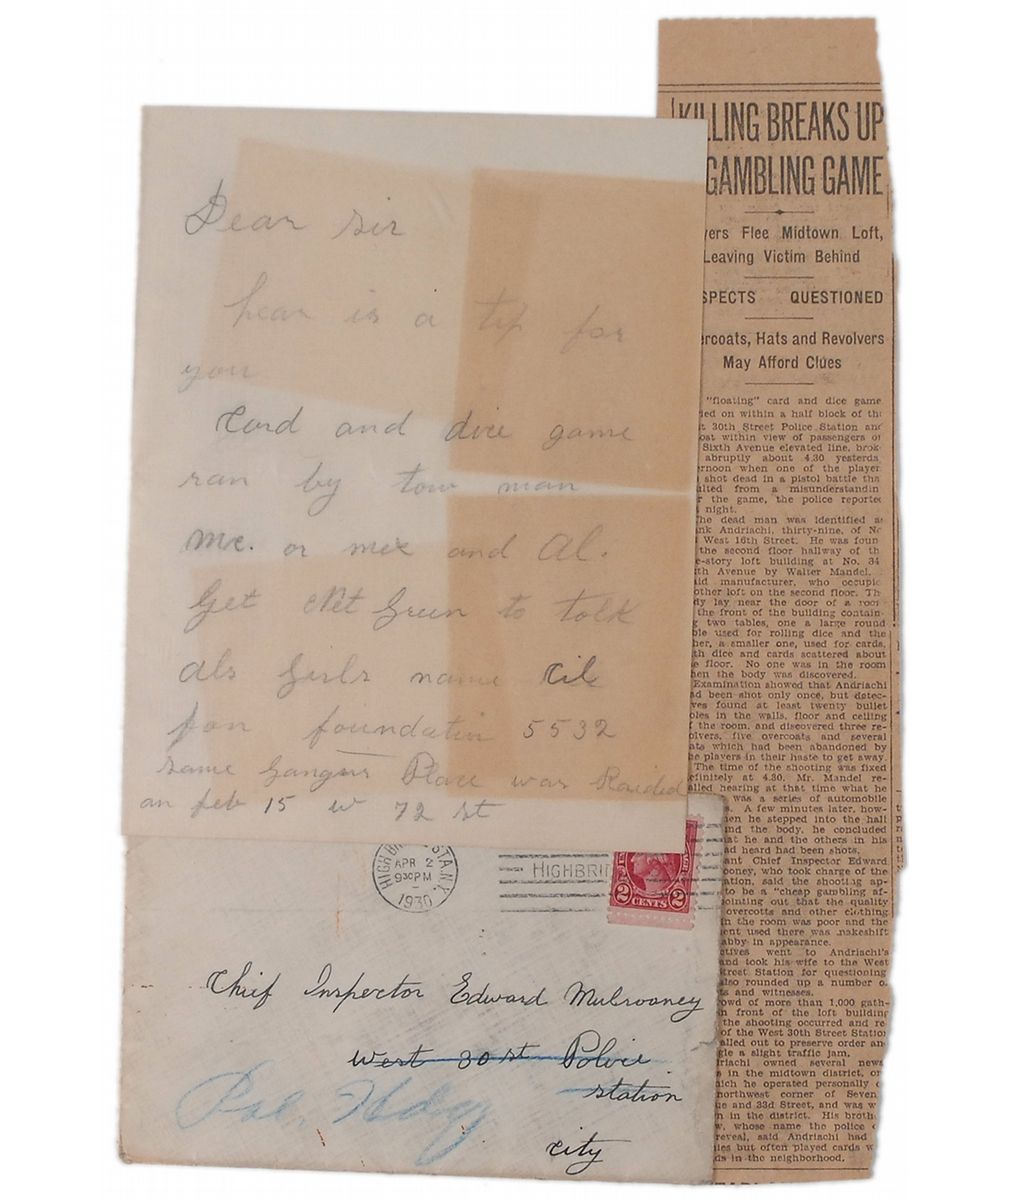 Dear sir
hear is a tip for
you
Card and dice game
ran by tow man
mc. or mex and Al.
Get Nat Green to talk
als Girls name
fon foundation 5532
same Gangus Place was Raided
on feb 15 w 72 st
APR 2
9 30 PM
1930
HIGHBRI
2 CENTS 2
Chief Inspector Edward Mulrooney
West 30 st Police
station
city
Pol. Hdq
KILLING BREAKS UP
GAMBLING GAME
Flee Midtown Loft,
Leaving Victim Behind
QUESTIONED
Hats and Revolvers
May Afford Clues
"floating" card and dice game
on within a half block of the
30th Street Police Station and
within view of passengers of
Sixth Avenue elevated line,
abruptly about 4.30
when one of the player
shot dead in a pistol battle
from a
the game, the police reported
night.
dead man was identified as
Andriachi, thirty-nine, of No
West 16th Street. He was
the second floor hallway of
loft building at No. 34
Avenue by Walter Mandel,
manufacturer, who
other loft on the second floor.
lay near the door of a
the front of the building contain-
two tables, one a large round
used for rolling dice and the
a smaller one, used for cards,
dice and cards scattered about
floor. No one was in the room
the body was discovered.
Examination showed that Andriachi
been shot only once, but detec-
found at least twenty bullet
in the walls, floor and ceiling
the room, and discovered three re-
five overcoats and several
which had been abandoned by
players in their haste to get away.
The time of the shooting was fixed
at 4.30. Mr. Mandel re-
hearing at that time what he
was a series of automobile
A few minutes later, how-
he stepped into the hall
the body, he concluded
he and the others in his
heard had been shots.
Chief Inspector Edward
who took charge of the
said the shooting ap-
to be a "cheap gambling af-
out that the quality
overcotts and other clothing
the room was poor and the
used there was makeshift
in appearance.
went to Andriachi's
and took his wife to the West
Street Station for questioning
rounded up a number
and witnesses.
of more than 1,000 gath-
front of the loft building
the shooting occurred and
of the West 30th Street Station
out to preserve order
a slight traffic jam.
owned several news
in the midtown district,
he operated personally
northwest corner of Seven
and 33d Street, and was
in the district. His
whose name the police
reveal, said Andriachi had
but often played cards
in the neighborhood.